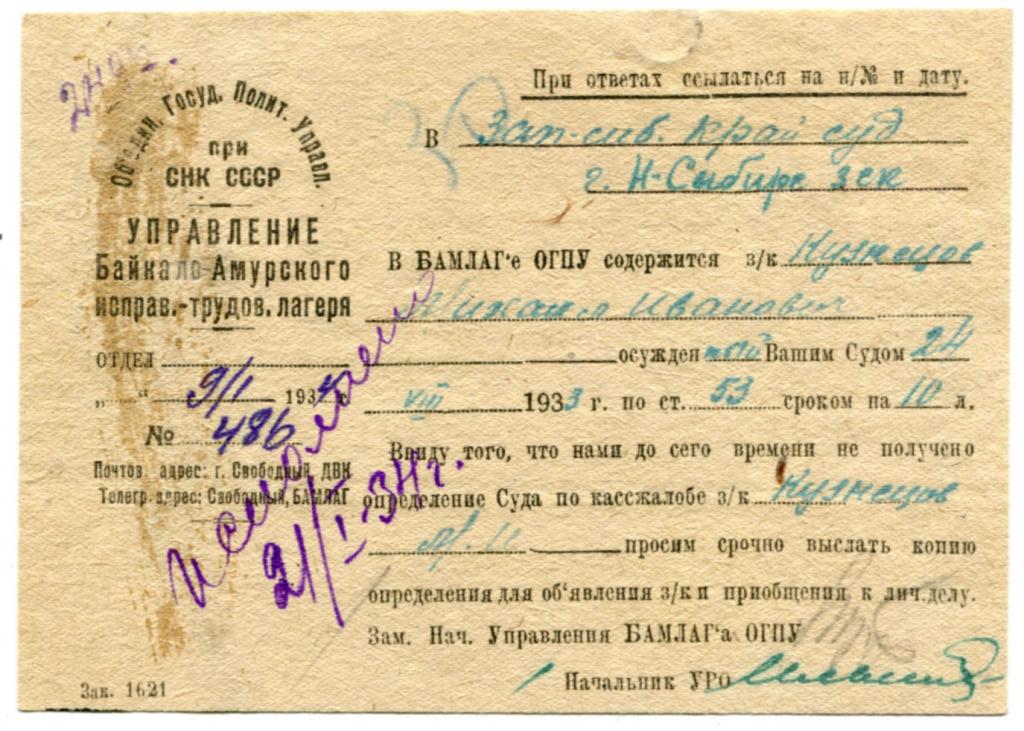 При ответах ссылаться на н/№ и дату.
Об'един. Госуд. Полит. Управл.
при
СНК СССР
УПРАВЛЕНИЕ
Байкало-Амурского
исправ.-трудов. лагеря
ОТДЕЛ
„ “ 9/I 1934 г.
№ 486
Почтов. адрес: г. Свободный, ДВК
Телегр. адрес: Свободный, БАМЛАГ
В Зап-сиб. край суд
г. Н-Сибирск
В БАМЛАГ'е ОГПУ содержится з/к Кузнецов
Михаил Иванович
осужденный Вашим Судом 24
VIII 1933 г. по ст. 53 сроком на 10 л.
Ввиду того, что нами до сего времени не получено
определение Суда по кассжалобе з/к Кузнецов
М. И. просим срочно выслать копию
определения для об'явления з/к и приобщения к лич. делу.
Зам. Нач. Управления БАМЛАГ'а ОГПУ
Начальник УРО
Исполнено
21/I-34 г.
Зак. 1621